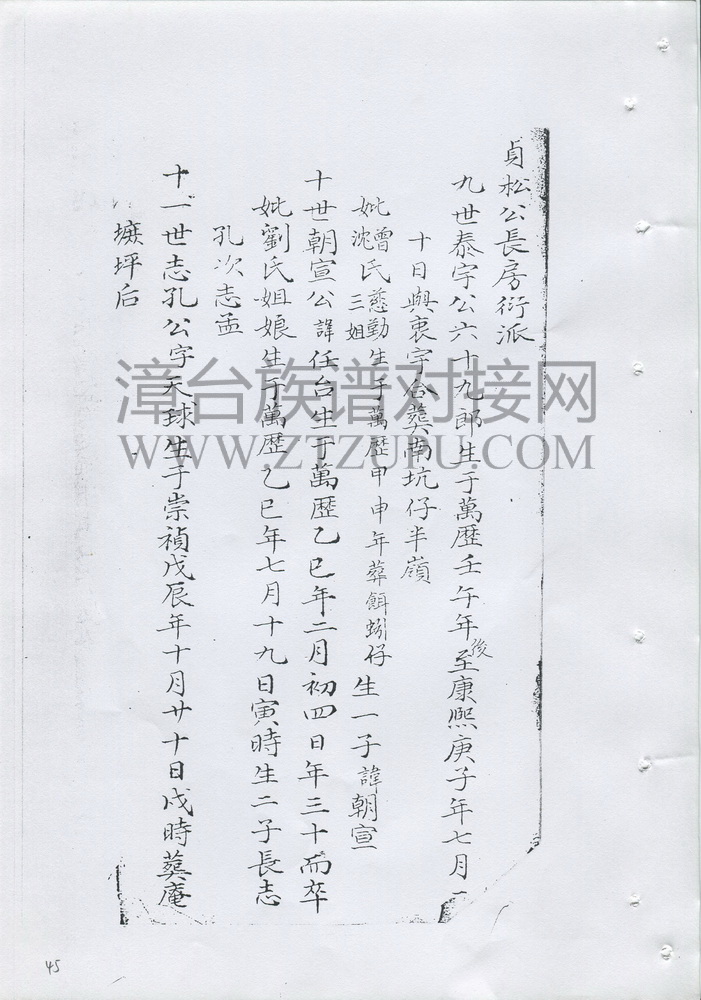 貞松公長房衍派
九世泰宇公六十九郎生于萬歷壬午年至康熙庚子年七月
孩
十日與衷宇合葬南坑仔半嶺
妣曾氏慈勤生于萬歷甲申年葬餌蚓仔生一子諱朝宣
沈 三姐
十世朝宣公諱任台生于萬歷乙巳年二月初四日年三十而卒
妣劉氏姐娘生于萬歷乙巳年七月十九日寅時生二子長志
孔次志孟
十一世志孔公字天球生于崇禎戊辰年十月廿十日戌時葬庵
坪后
漳台族谱对接网
WWW.ZTZUPU.COM
45